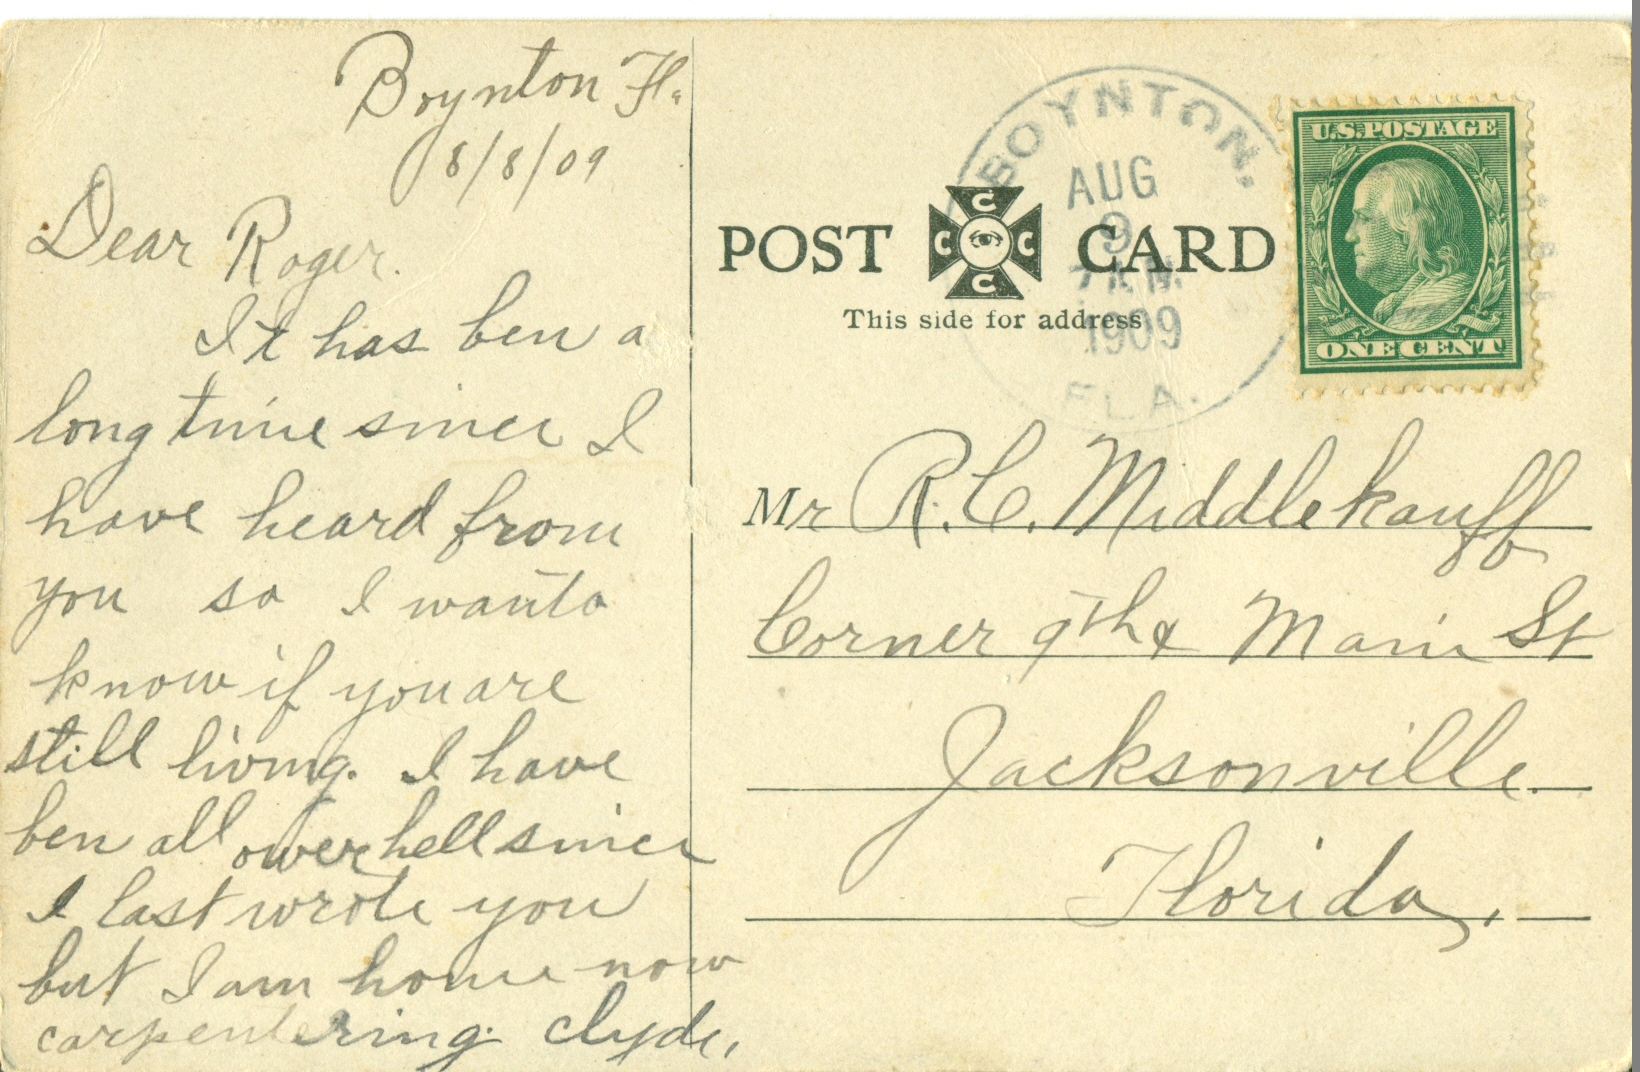 Boynton Fl.
8/8/09
Dear Roger.
It has ben a
long time since I
have heard from
you so I want to
know if you are
still living. I have
ben all over hell since
I last wrote you
but I am home now
carpentering. Clyde.
BOYNTON,
AUG
9
7 AM
1909
FLA.
U.S. POSTAGE
ONE CENT
POST CARD
C
C C
C
This side for address
Mr R. C. Middlekauff
Corner 9th & Main St
Jacksonville.
Florida,